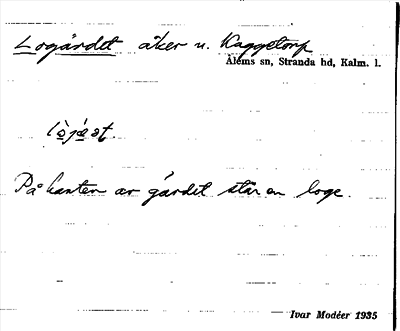 Logärdet åker u. Kaggetorp
Ålems sn, Stranda hd, Kalm. l.
På kanten av gärdet står en loge.
Ivar Modéer 1935